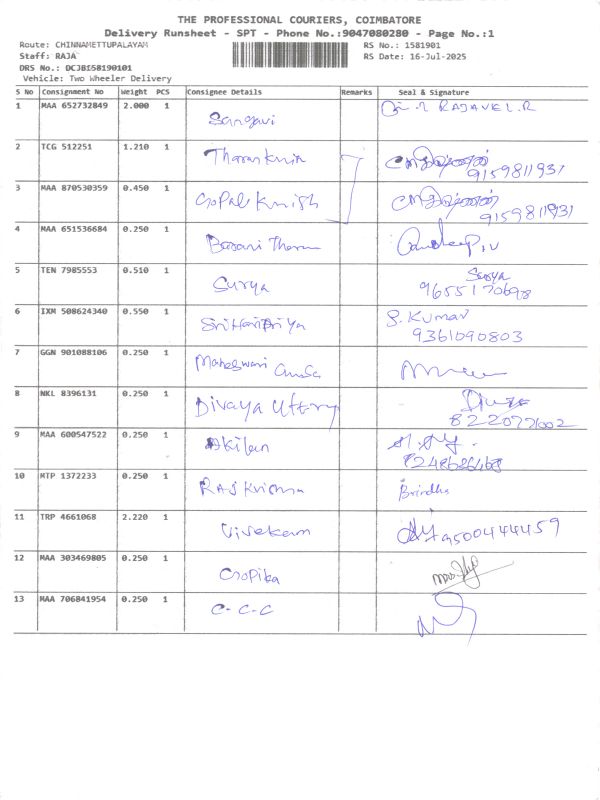 THE PROFESSIONAL COURIERS, COIMBATORE
Delivery Runsheet - SPT - Phone No.:9047080280 - Page No.:1
Route: CHINNAMETTUPALAYAM
RS No.: 1581901
Staff: RAJA
RS Date: 16-Jul-2025
DRS No.: DCJBI58190101
Vehicle: Two Wheeler Delivery
S No Consignment No Weight PCS Consignee Details Remarks Seal & Signature
1 MAA 652732849 2.000 1 Sangavi RAJAVEL.R
2 TCG 512251 1.210 1 9159811931
3 MAA 870530359 0.450 1 Gopal Krnish 9159811931
4 MAA 651536684 0.250 1
5 TEN 7985553 0.510 1 Surya Surya
9655170698
6 IXM 508624340 0.550 1 SriHariPriya S. Kumar
9361090803
7 GGN 901088106 0.250 1 Maheswari
8 NKL 8396131 0.250 1 Divaya
9 MAA 600547522 0.250 1 Akilan
10 MTP 1372233 0.250 1 Raj Krishna Brindha
11 TRP 4661068 2.220 1 Vivekam 9500444459
12 MAA 303469805 0.250 1 Gopika
13 MAA 706841954 0.250 1 C-C-C